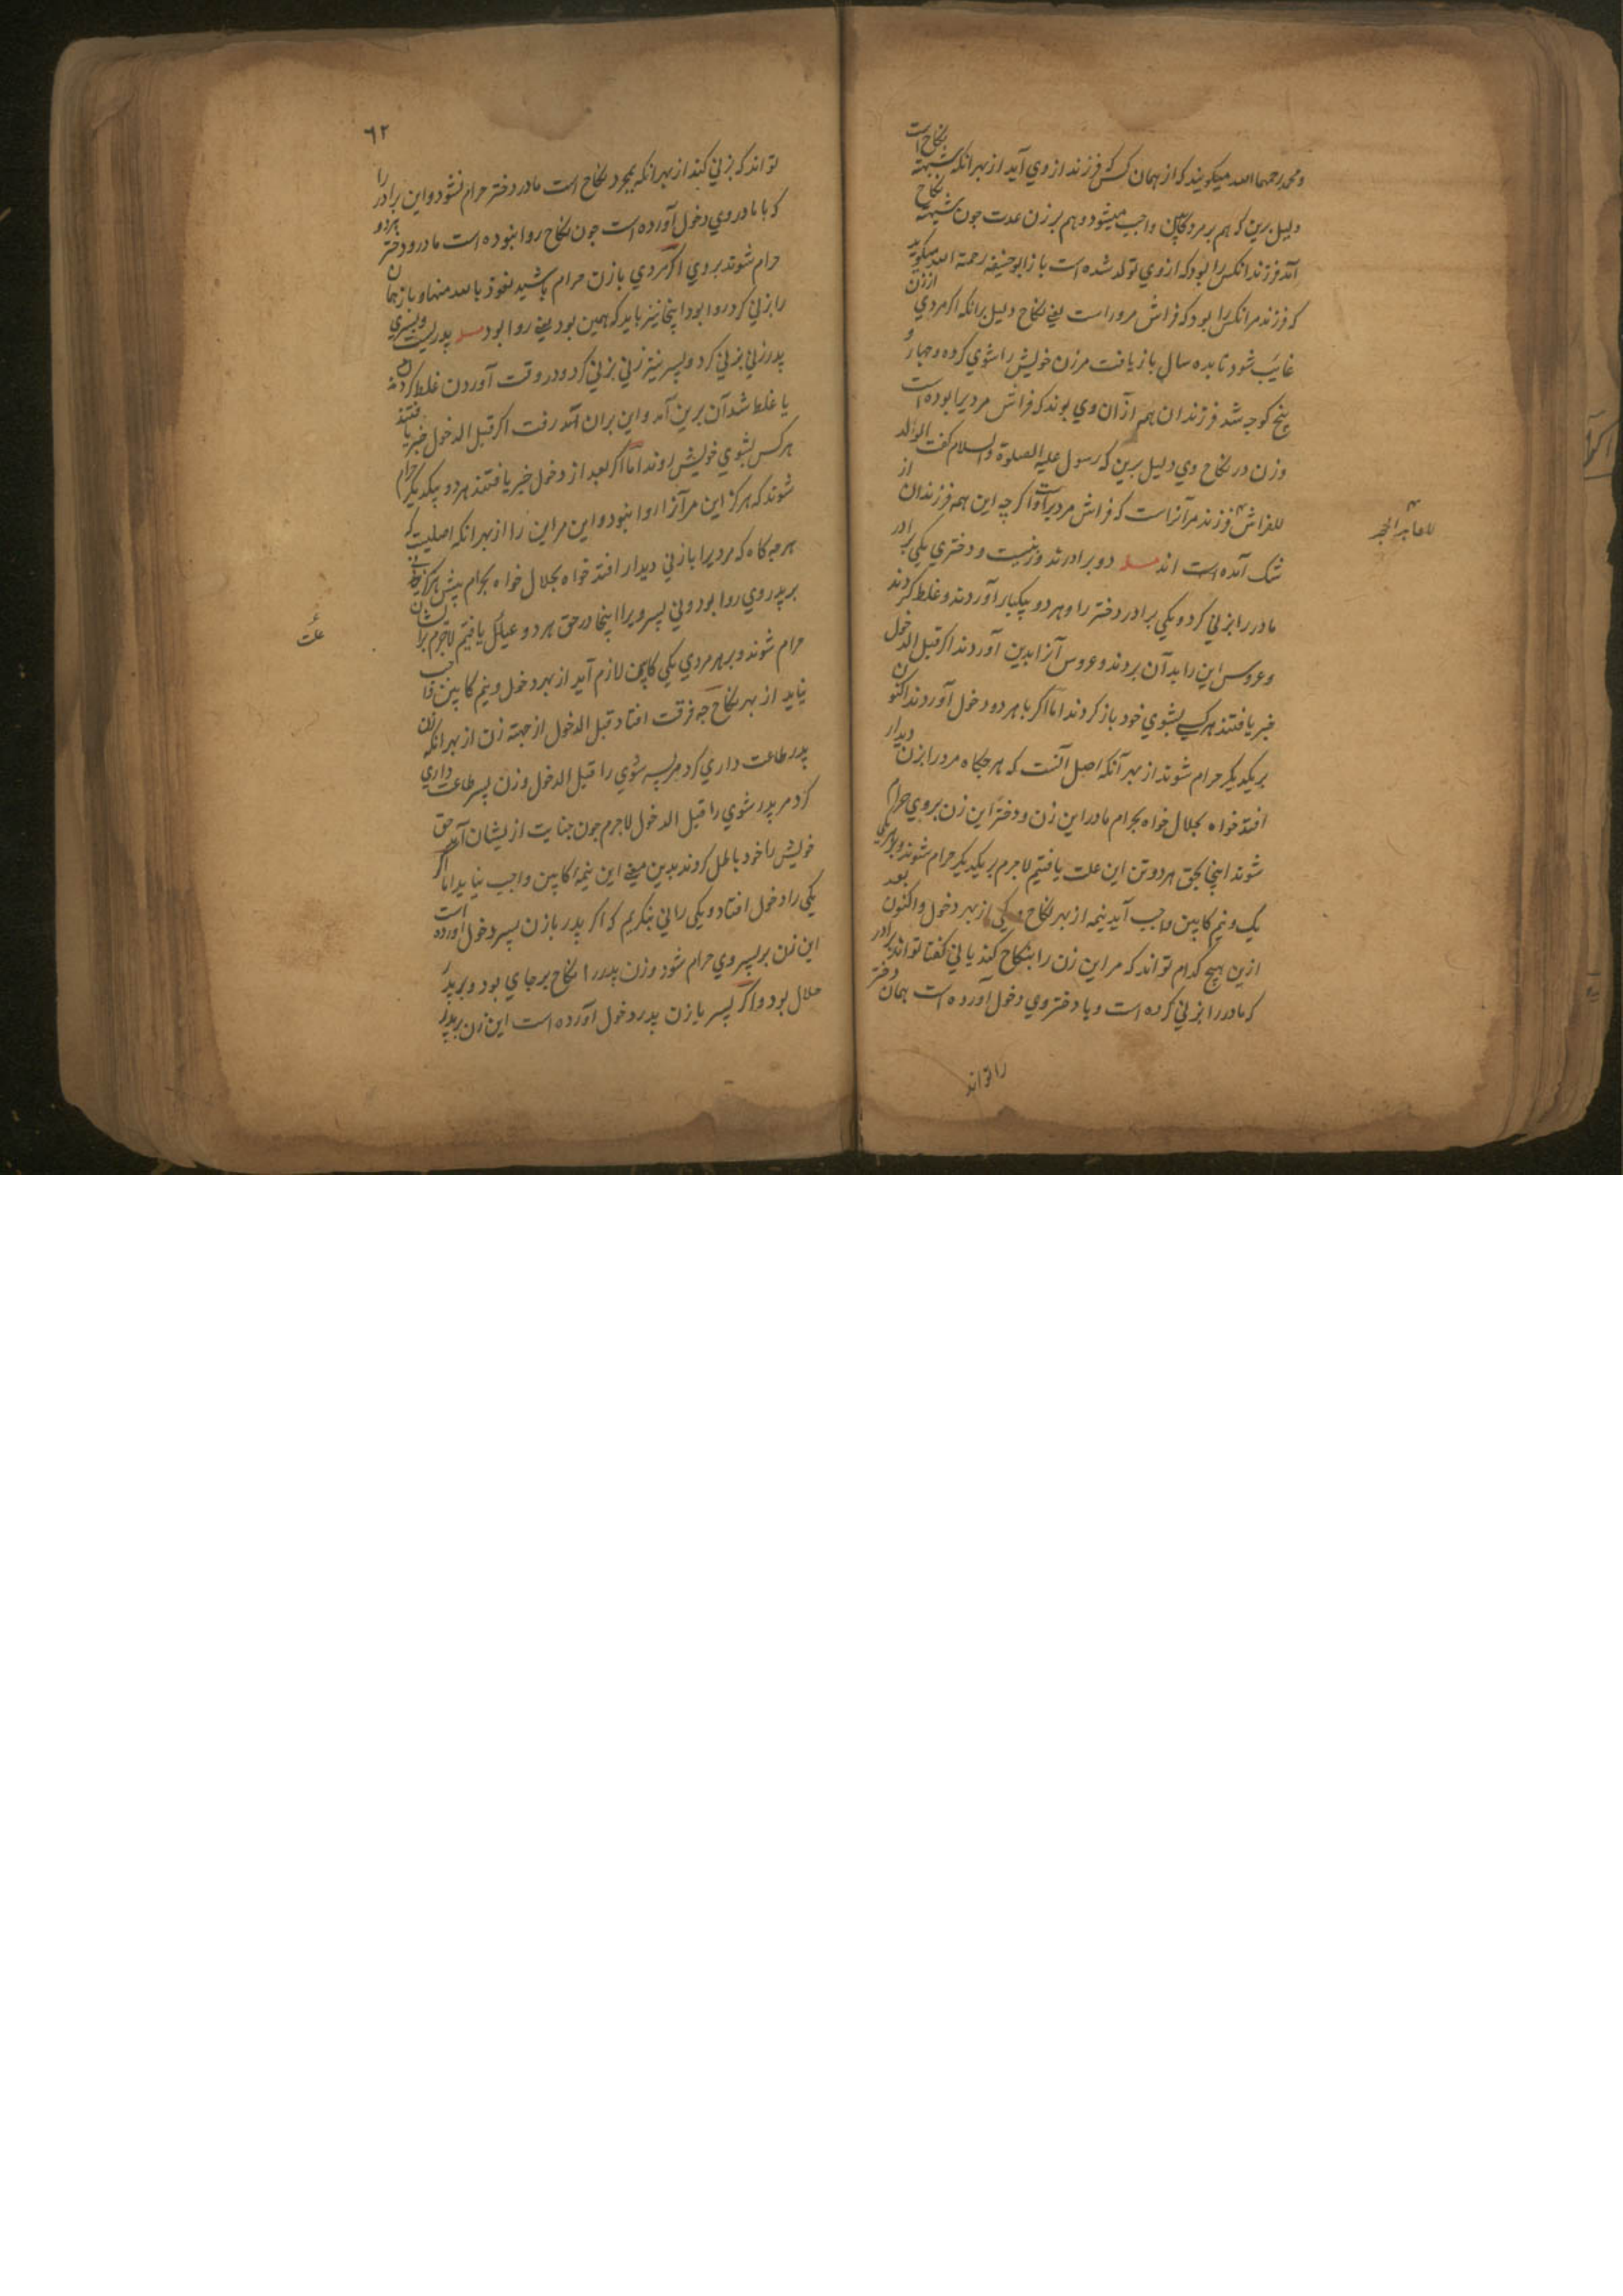 و محمد رحمهما الله میکویند که از همان کس که فرزند از وی آید از بهر انکه شبهة نکاح است
دلیل برین که هم بر مرد کاپین واجب میشود و هم بر زن عدت جون شبهة نکاح
آمد فرزند انکس را بود که ازوی تولد شده است باز ابوحنیفه رحمة الله میکوید
که فرزند مرانکس را بود که فراش مروراست یعنی نکاح دلیل برانکه اکر مردی از زن
غایب شود تا بده سال باز یافت مرزن خویش را شوی کرده و جهار و
پنج کوجه شد فرزندان هم ازآن وی بوند که فراش مردیرا بوده است
وزن در نکاح وی دلیل برین که رسول علیه الصلوة والسلام کفت الولد
للفراش فرزند مرآنراست که فراش مردیراست و اکر چه این همه فرزندان از
للعاهر الحجر
شک آمده است اند مسله دو برادرند وزنیست و دختری یکی برادر
مادر را بزنی کرد و یکی برادر دختر را و هر دو بیکبار آوردند و غلط کردند
و عروس این را بدآن بردند و عروس آنرا بدین آوردند اکر قبل الدخول
خبر یافتند هرکسی بشوی خود باز کردند اما اکر با هر دو دخول آوردند اکنون
بریکدیکر حرام شوند از بهر آنکه اصل آنست که هر جکاه مرورا بزن دیدار
افتد خواه بحلال خواه بحرام مادر این زن و دختر این زن بروی حرام
شوند اینجا بحق هر دو تن این علت یافتیم لاجرم بریکدیکر حرام شوند و بر هر یکی
یک و نیم کابین واجب آید نیمه از بهر نکاح و یکی از بهر دخول و اکنون بعد
ازین هیچ کدام تواند که مراین زن را بنکاح کند یا نی کفتا تواند برادر
که مادر را بزنی کرده است و با دختر وی دخول آورده است همان دختر
را تواند
٦٢
تواند که بزنی کند از بهر انکه بمجرد نکاح است مادر دختر حرام نشود و این برادر را
که با مادر وی دخول آورده است جون نکاح روا نبوده است مادر و دختر هردو
حرام شوند بروی اکر مردی با زن حرام باشید نعوذ بالله منها و باز همان
را بزنی کرد روا بود اینجا نیز باید که همین بود یعنی روا بود مسله پدریست و پسری
پدر زنی بزنی کرد و پسر نیز زنی بزنی کرد و در وقت آوردن غلط کردند
یا غلط شد آن برین آمد و این بران آمد رفت اکر قبل الدخول خبر یافتند
هرکس بشوی خویش روند اما اکر بعد از دخول خبر یافتند هر دو بیکدیکر حرام
شوند که هرکز این مرآنرا روا نبود و این مراین را از بهر انکه اصلیست که
هر جه کاه که مردیرا با زنی دیدار افتد خواه بحلال خواه بحرام پیش هرکز
بر پدر وی روا بود ونی پسر ویرا اینجا در حق هر دو عیال یافتیم لاجرم بر ایشان
علت
حرام شوند و بر هر مردی یکی کاپین لازم آید از بهر دخول و نیم کابین واجب
نیاید از بهر نکاح جه فرقت افتاد قبل الدخول از جهة زن از بهر انکه زن
پدر طاعت داری کرد مر پسر شوی را قبل الدخول وزن پسر طاعت داری
کرد مر پدر شوی را قبل الدخول لاجرم جون جنایت ازیشان آمد حق
خویش را خود باطل کردند بدین معنی این نیمه کاپین واجب نیاید اما اکر
یکی را دخول افتاد و یکی رانی بنکریم که اکر پدر با زن پسر دخول آورده است
این زن بر پسر وی حرام شود وزن پدر را نکاح بر جای بود و بر پدر
حلال بود و اکر پسر با زن پدر دخول آورده است این زن بر پدر